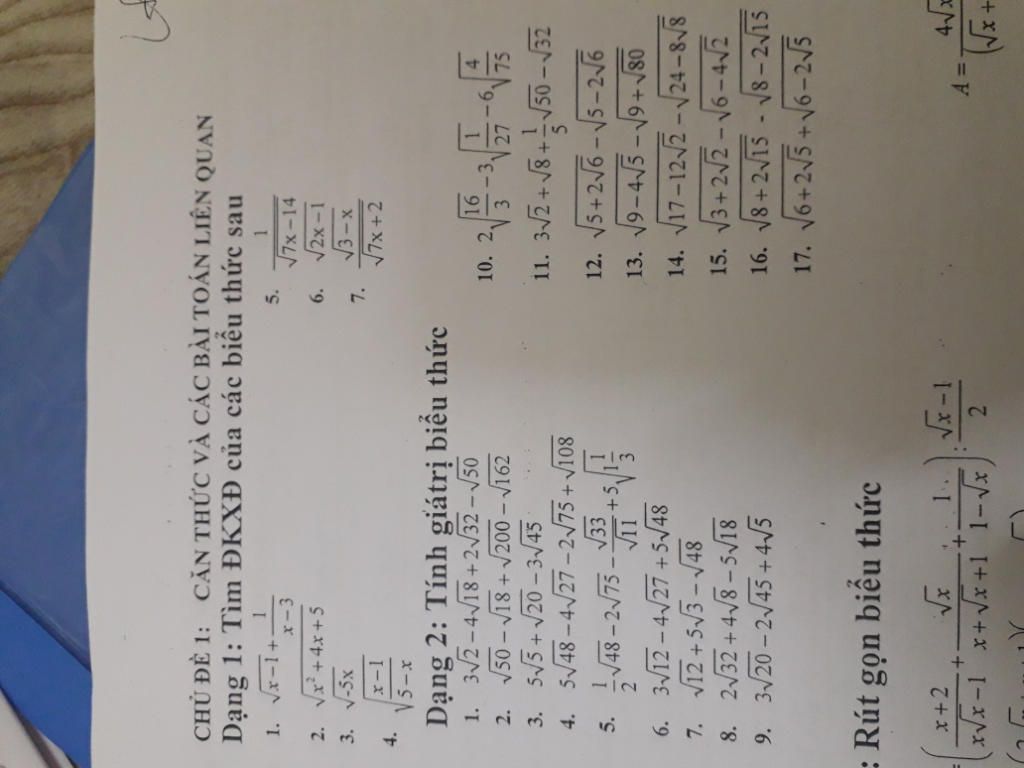 CHỦ ĐỀ 1: CĂN THỨC VÀ CÁC BÀI TOÁN LIÊN QUAN
Dạng 1: Tìm ĐKXĐ của các biểu thức sau
1. √(x-1) + 1/(x-3)
2. √(x² + 4x + 5)
3. √(-5x)
4. √((x-1)/(5-x))
5. 1/√(7x-14)
6. √(2x-1)
7. √(3-x)/√(7x+2)
Dạng 2: Tính giá trị biểu thức
1. 3√2 - 4√18 + 2√32 - √50
2. √50 - √18 + √200 - √162
3. 5√5 + √20 - 3√45
4. 5√48 - 4√27 - 2√75 + √108
5. 1/2 √48 - 2√75 - √33/√11 + 5√(1 1/3)
6. 3√12 - 4√27 + 5√48
7. √12 + 5√3 - √48
8. 2√32 + 4√8 - 5√18
9. 3√20 - 2√45 + 4√5
10. 2√(16/3) - 3√(1/27) - 6√(4/75)
11. 3√2 + √8 + 1/5 √50 - √32
12. √(5+2√6) - √(5-2√6)
13. √(9-4√5) - √(9+√80)
14. √(17-12√2) - √(24-8√8)
15. √(3+2√2) - √(6-4√2)
16. √(8+2√15) - √(8-2√15)
17. √(6+2√5) + √(6-2√5)
: Rút gọn biểu thức
= ( (x+2)/(x√x-1) + √x/(x+√x+1) + 1/(1-√x) ) : (√x-1)/2
A = 4√x
(√x +